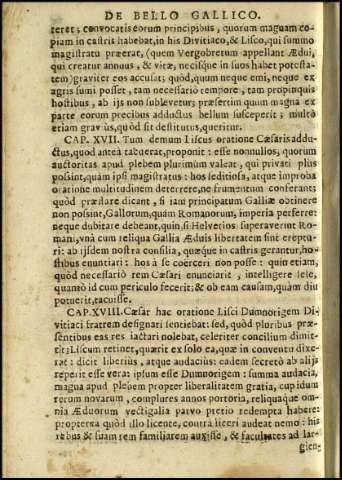 DE BELLO GALLICO.
teret; convocatis eorum principibus, quorum magnam co-
piam in castris habebat, in his Divitiaco, & Lisco, qui summo
magistratu præerat, (quem Vergobretum appellant Ædui,
qui creatur annuus, & vitæ, necisque in suos habet potesta-
tem) graviter eos accusat; quòd, quum neque emi, neque ex
agris sumi posset, tam necessario tempore, tam propinquis
hostibus, ab ijs non sublevetur; præsertim quum magna ex
parte eorum precibus adductus bellum susceperit; multò
etiam graviùs, quòd sit destitutus, queritur.
CAP. XVII. Tum demum Liscus oratione Cæsaris addu-
ctus, quod anteà tacuerat, proponit: esse nonnullos, quorum
auctoritas apud plebem plurimùm valeat, qui privati plus
possint, quàm ipsi magistratus: hos seditiosa, atque improba
oratione multitudinem deterrere, ne frumentum conferant;
quòd præstare dicant, si iam principatum Galliæ obtinere
non possint, Gallorum, quàm Romanorum, imperia perferre:
neque dubitare debeant, quin, si Helvetios superaverint Ro-
mani, vnà cum reliqua Gallia Æduis libertatem sint erepturi
ri: ab ijsdem nostra consilia, quæque in castris gerantur, ho-
stibus enuntiari: hos à se coërceri non posse: quin etiam,
quòd necessariò rem Cæsari enunciarit, intelligere sese,
quantò id cum periculo fecerit; & ob eam causam, quàm diu
potuerit, tacuisse.
CAP. XVIII. Cæsar hac oratione Lisci Dumnorigem Di-
vitiaci fratrem designari sentiebat: sed, quòd pluribus præ-
sentibus eas res iactari nolebat, celeriter concilium dimit-
tit; Liscum retinet, quærit ex solo ea, quæ in conventu dixe-
rat: dicit liberiùs, atque audacius: eadem secretò ab alijs
reperit esse vera: ipsum esse Dumnorigem: summa audacia,
magna apud plebem propter liberalitatem gratia, cupidum
rerum novarum, complures annos portoria, reliquaque om-
nia Æduorum vectigalia parvo pretio redempta habere:
proptereà quòd illo licente, contrà liceri audeat nemo: his
rebus & suam rem familiarem auxisse, & facultates ad lar-
gien-